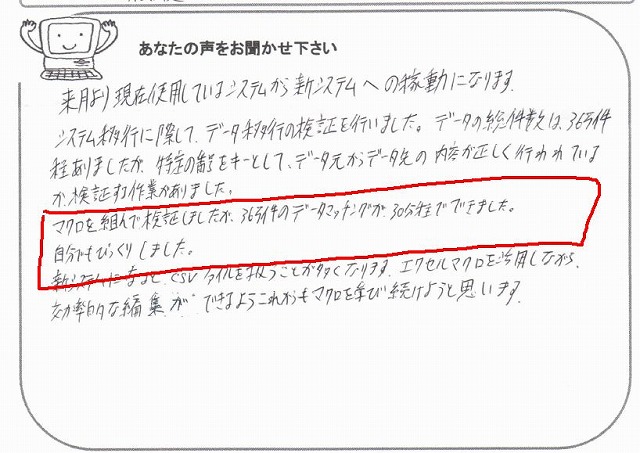 あなたの声をお聞かせ下さい
来月より現在使用しているシステムから新システムへの稼動になります。
システム移行に際して、データ移行の検証を行いました。データの総件数は、36万件
程ありましたが、特定の値をキーとして、データ元からデータ先の内容が正しく行われている
か、検証する作業がありました。
マクロを組んで検証しましたが、36万件のデータマッチングが、30分程でできました。
自分でもびっくりしました。
新システムになると、CSVファイルを扱うことが多くなります。エクセルマクロを活用しながら、
効率的な編集ができるようこれからもマクロを学び続けようと思います。